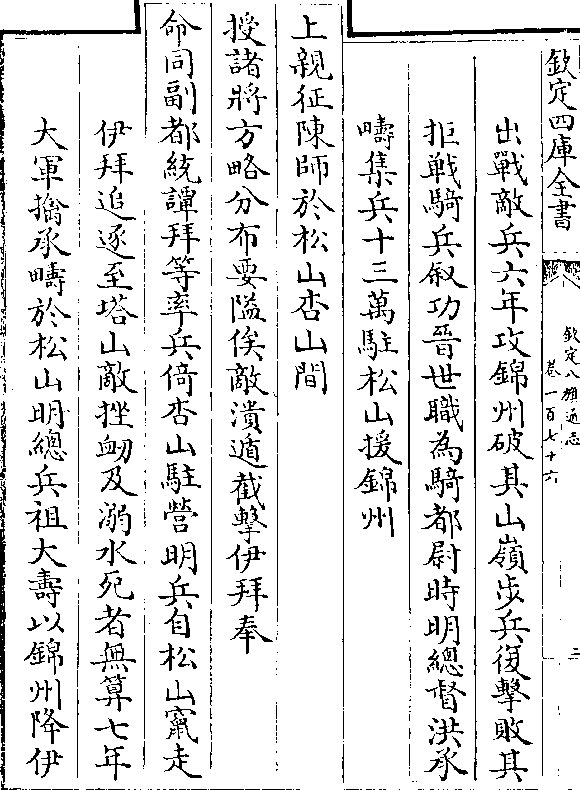 欽定四庫全書
欽定八旗通志
卷一百七十六
三
出戰敵兵六年攻錦州破其山嶺步兵復擊敗其
拒戰騎兵叙功晉世職為騎都尉時明總督洪承
疇集兵十三萬駐松山援錦州
上親征陳師於松山杏山間
授諸將方略分布要隘俟敵潰遁截擊伊拜奉
命同副都統譚拜等率兵倚杏山駐營明兵自松山竄走
伊拜追逐至塔山敵挫衂及溺水死者無算七年
大軍擒承疇於松山明總兵祖大壽以錦州降伊